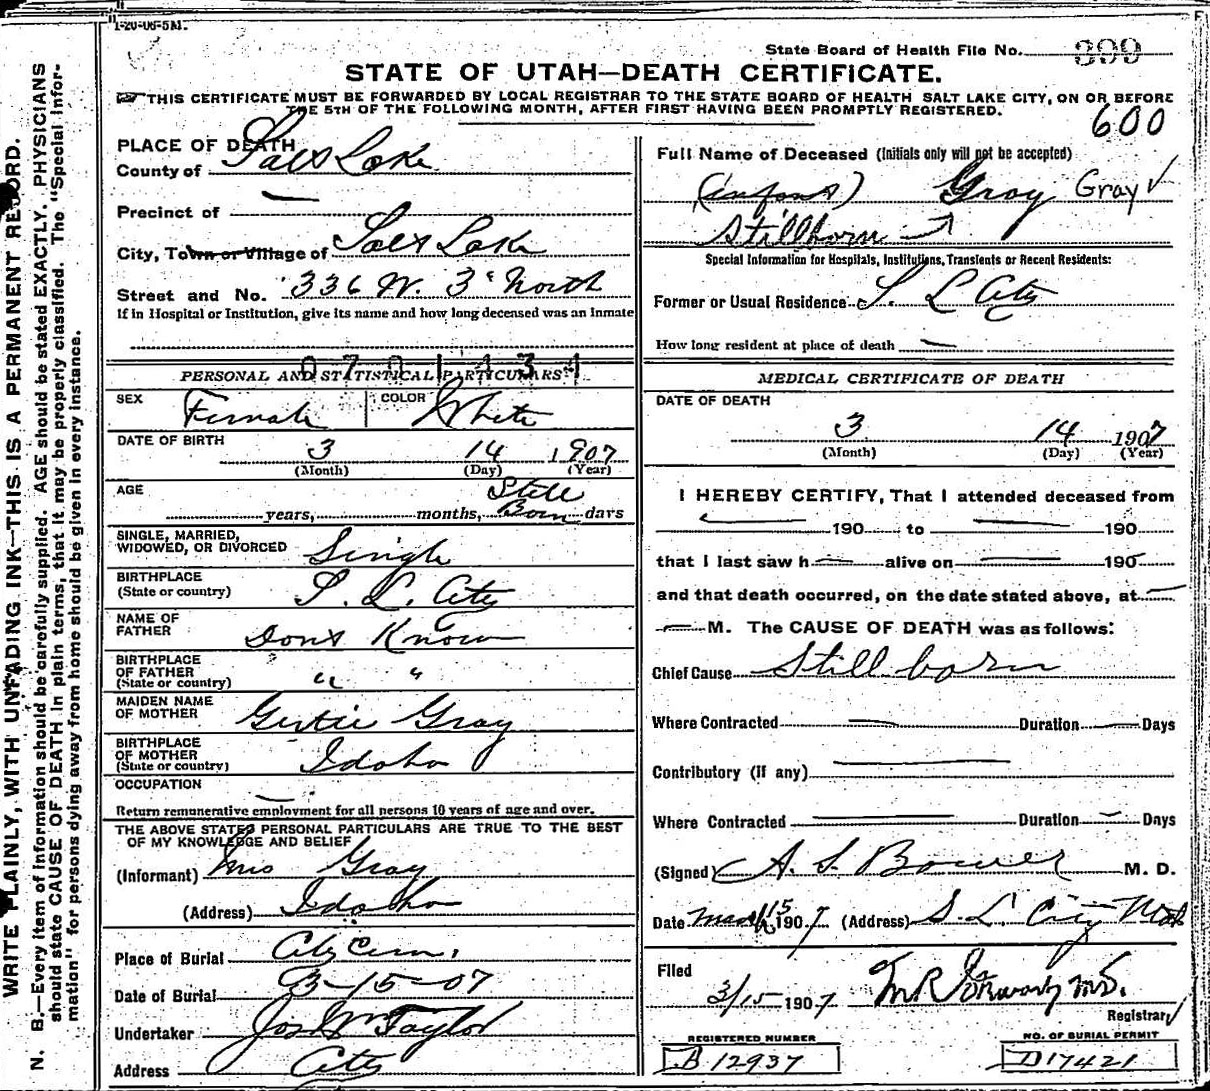 1-20-06-5M.
State Board of Health File No. 399
STATE OF UTAH—DEATH CERTIFICATE.
THIS CERTIFICATE MUST BE FORWARDED BY LOCAL REGISTRAR TO THE STATE BOARD OF HEALTH SALT LAKE CITY, ON OR BEFORE
THE 5TH OF THE FOLLOWING MONTH, AFTER FIRST HAVING BEEN PROMPTLY REGISTERED.
600
WRITE PLAINLY, WITH UNFADING INK—THIS IS A PERMANENT RECORD.
N. B.—Every item of information should be carefully supplied. AGE should be stated EXACTLY. PHYSICIANS
should state CAUSE OF DEATH in plain terms, that it may be properly classified. The "Special Infor-
mation" for persons dying away from home should be given in every instance.
PLACE OF DEATH
County of Salt Lake
Precinct of —
City, Town or Village of Salt Lake
Street and No. 336 W. 3d North
If in Hospital or Institution, give its name and how long deceased was an Inmate
PERSONAL AND STATISTICAL PARTICULARS
SEX Female COLOR White
DATE OF BIRTH
3 14 1907
(Month) (Day) (Year)
AGE Still
years, months, Born days
SINGLE, MARRIED,
WIDOWED, OR DIVORCED Single
BIRTHPLACE
(State or country) S. L. City
NAME OF
FATHER Dont Know
BIRTHPLACE
OF FATHER
(State or country) " "
MAIDEN NAME
OF MOTHER Gertie Gray
BIRTHPLACE
OF MOTHER
(State or country) Idaho
OCCUPATION —
Return remunerative employment for all persons 10 years of age and over.
THE ABOVE STATED PERSONAL PARTICULARS ARE TRUE TO THE BEST
OF MY KNOWLEDGE AND BELIEF
(Informant) Mrs Gray
(Address) Idaho
Place of Burial City Cem.
Date of Burial 3-15-07
Undertaker Jos Wm Taylor
Address City
Full Name of Deceased (Initials only will not be accepted)
(infant) Gray Gray ✓
Stillborn
Special Information for Hospitals, Institutions, Transients or Recent Residents:
Former or Usual Residence S. L City
How long resident at place of death —
MEDICAL CERTIFICATE OF DEATH
DATE OF DEATH
3 14 1907
(Month) (Day) (Year)
I HEREBY CERTIFY, That I attended deceased from
— 190 to — 190
that I last saw h— alive on — 190
and that death occurred, on the date stated above, at —
— M. The CAUSE OF DEATH was as follows:
Chief Cause Still born
Where Contracted — Duration — Days
Contributory (if any) —
Where Contracted — Duration — Days
(Signed) A. S. Bower M. D.
Date March 15 1907 (Address) S. L City Utah
Filed
3/15 1907 M.D.
Registrar
REGISTERED NUMBER
B 12937
NO. OF BURIAL PERMIT
D17421